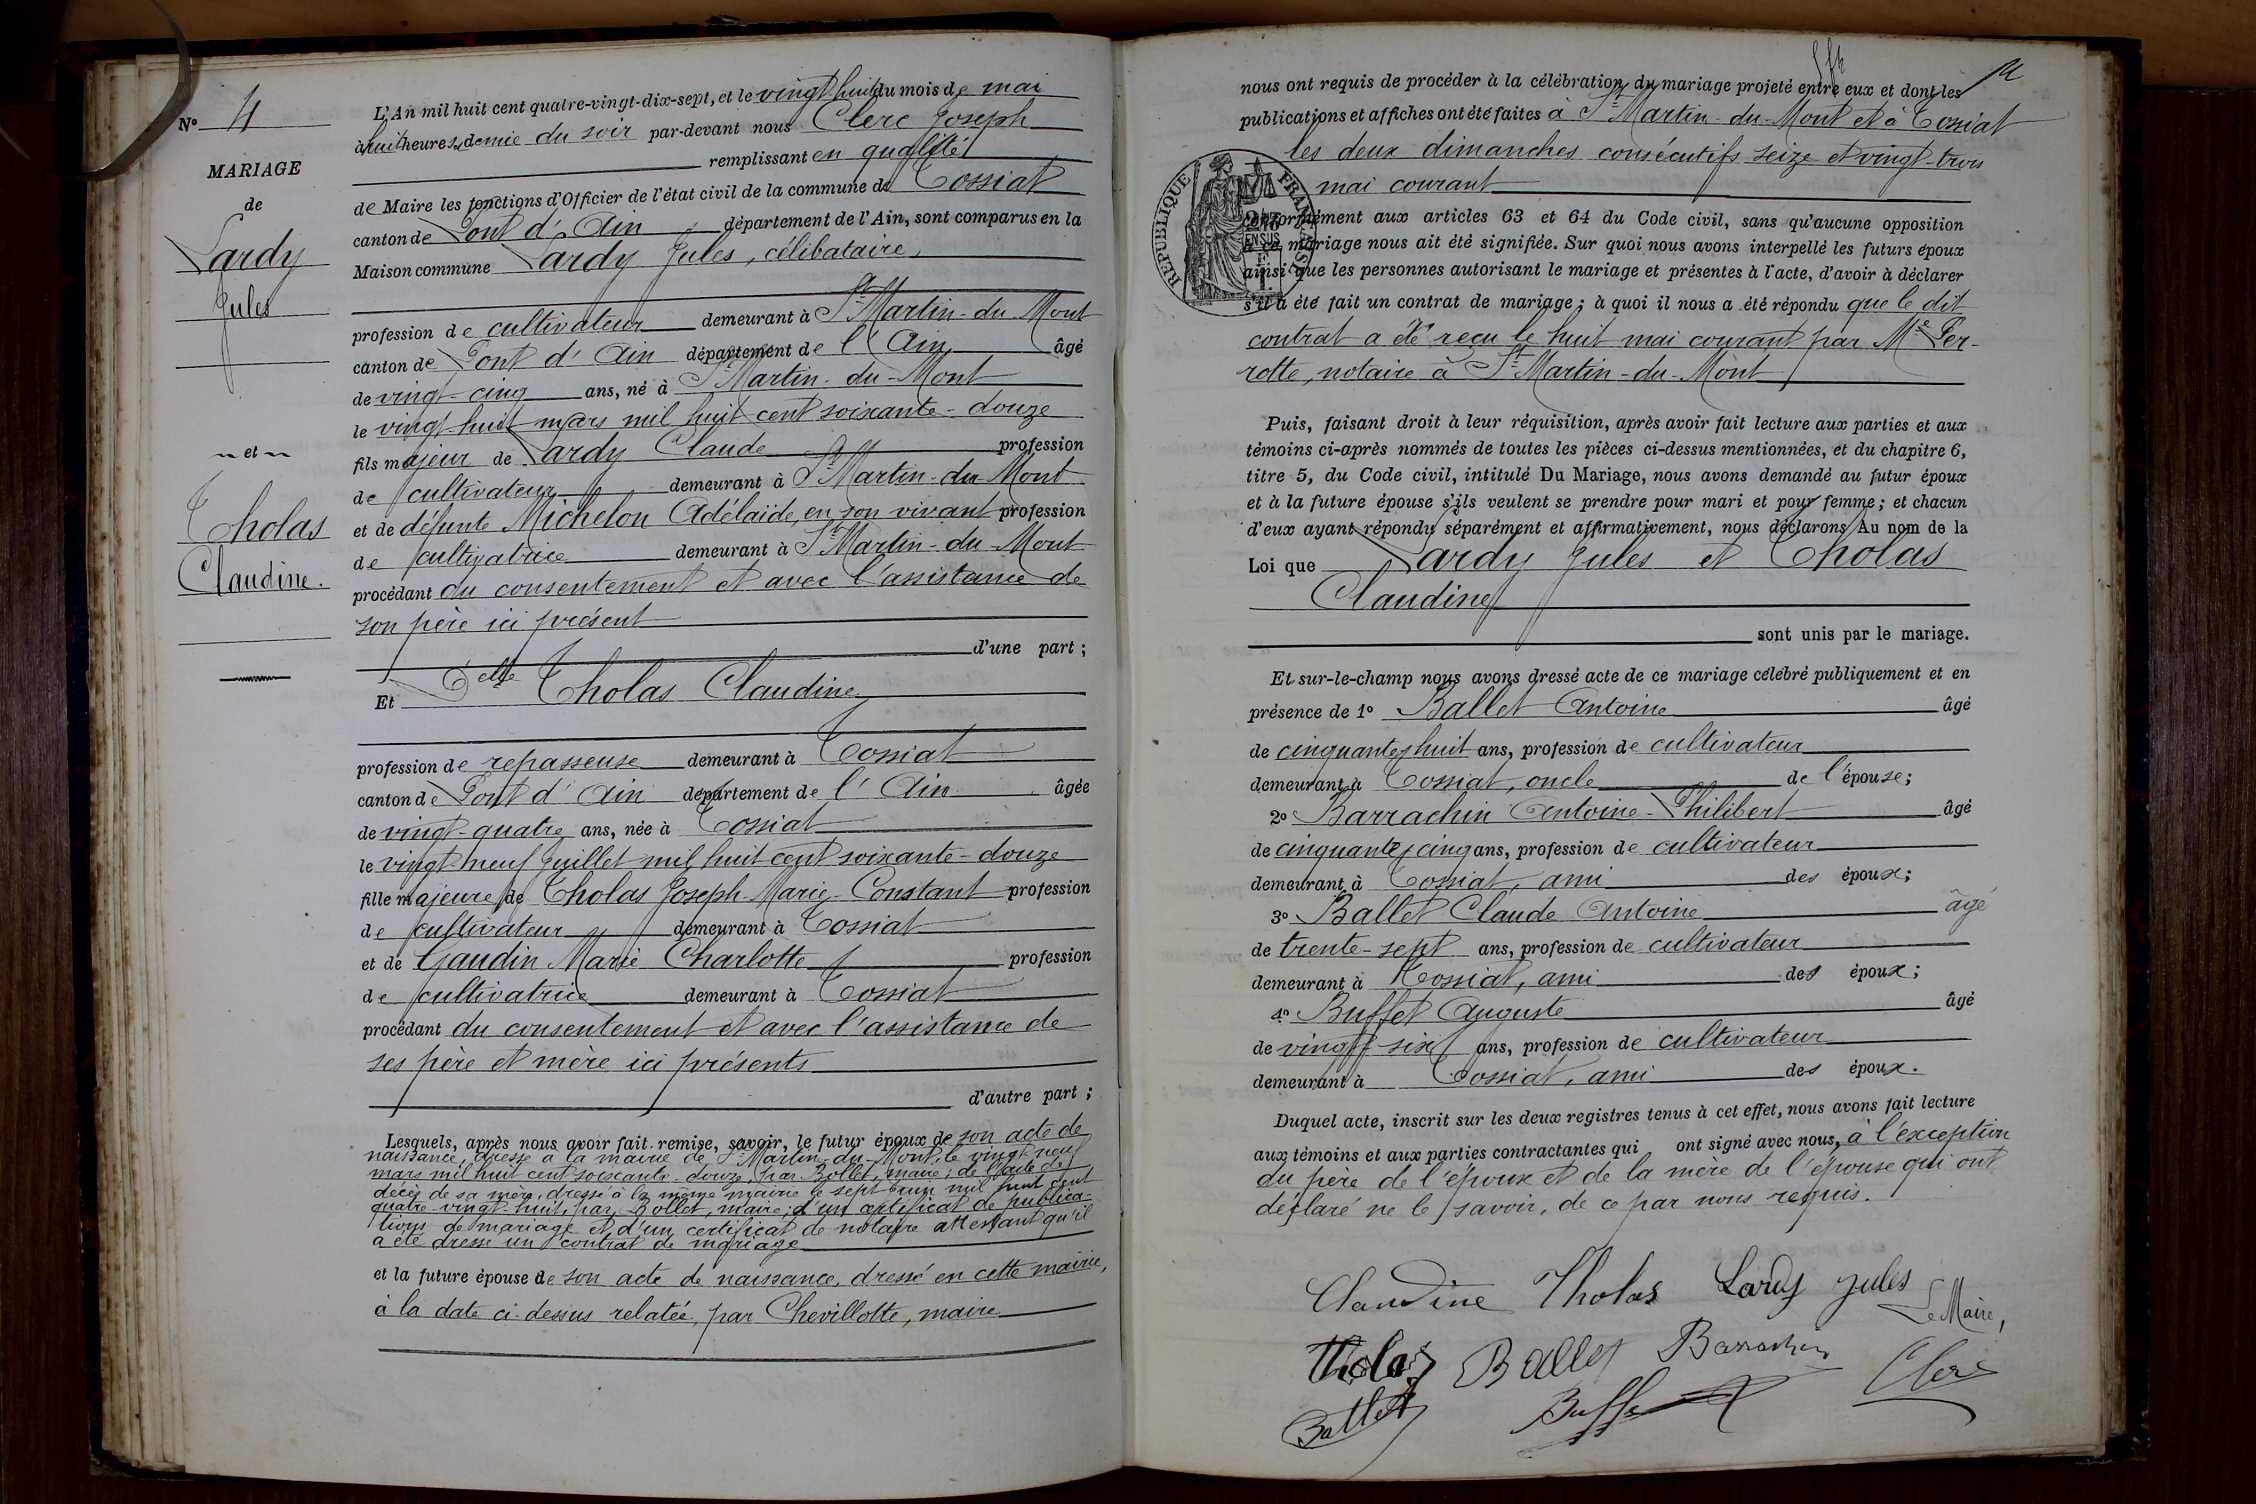 N° 4
MARIAGE
de
Lardy
Jules
et
Tholas
Claudine.
L'An mil huit cent quatre-vingt-dix-sept, et le vingt huit du mois de mai
à huit heures demie du soir par-devant nous Clerc Joseph
remplissant en qualité
de Maire les fonctions d'Officier de l'état civil de la commune de Tossiat
canton de Pont d'Ain département de l'Ain, sont comparus en la
Maison commune Lardy Jules, célibataire,
profession de cultivateur demeurant à St Martin-du-Mont
canton de Pont d'Ain département de l'Ain âgé
de vingt-cinq ans, né à St Martin-du-Mont
le vingt-huit mars mil huit cent soixante-douze
fils majeur de Lardy Claude profession
de cultivateur demeurant à St Martin-du-Mont
et de défunte Michelon Adélaïde, en son vivant profession
de cultivatrice demeurant à St Martin-du-Mont
procédant du consentement et avec l'assistance de
son père ici présent
d'une part ;
Et Delle Tholas Claudine
profession de repasseuse demeurant à Tossiat
canton de Pont d'Ain département de l'Ain âgée
de vingt-quatre ans, née à Tossiat
le vingt neuf juillet mil huit cent soixante-douze
fille majeure de Tholas Joseph-Marie-Constant profession
de cultivateur demeurant à Tossiat
et de Gaudin Marie Charlotte profession
de cultivatrice demeurant à Tossiat
procédant du consentement et avec l'assistance de
ses père et mère ici présents
d'autre part ;
Lesquels, après nous avoir fait remise, savoir, le futur époux de son acte de
naissance, dressé à la mairie de St Martin-du-Mont, le vingt-neuf
mars mil huit cent soixante-douze, par Bollet, maire ; de l'acte de
décès de sa mère, dressé à la même mairie le sept mil huit cent
quatre-vingt-huit, par Bollet, maire ; d'un certificat de publica-
tions de mariage et d'un certificat de notaire attestant qu'il
a été dressé un contrat de mariage
et la future épouse de son acte de naissance, dressé en cette mairie,
à la date ci-dessus relatée, par Chevillotte, maire
nous ont requis de procéder à la célébration du mariage projeté entre eux et dont les
publications et affiches ont été faites à St Martin-du-Mont et à Tossiat
les deux dimanches consécutifs seize et vingt-trois
mai courant
RÉPUBLIQUE FRANÇAISE
conformément aux articles 63 et 64 du Code civil, sans qu'aucune opposition
à ce mariage nous ait été signifiée. Sur quoi nous avons interpellé les futurs époux
ainsi que les personnes autorisant le mariage et présentes à l'acte, d'avoir à déclarer
s'il a été fait un contrat de mariage ; à quoi il nous a été répondu que le dit
contrat a été reçu le huit mai courant par Me Per-
rotte, notaire à St Martin-du-Mont
Puis, faisant droit à leur réquisition, après avoir fait lecture aux parties et aux
témoins ci-après nommés de toutes les pièces ci-dessus mentionnées, et du chapitre 6,
titre 5, du Code civil, intitulé Du Mariage, nous avons demandé au futur époux
et à la future épouse s'ils veulent se prendre pour mari et pour femme ; et chacun
d'eux ayant répondu séparément et affirmativement, nous déclarons Au nom de la
Loi que Lardy Jules et Tholas
Claudine
sont unis par le mariage.
Et sur-le-champ nous avons dressé acte de ce mariage célébré publiquement et en
présence de 1° Ballet Antoine âgé
de cinquante-huit ans, profession de cultivateur
demeurant à Tossiat, oncle de l'épouse ;
2° Barrachin Antoine-Philibert âgé
de cinquante-cinq ans, profession de cultivateur
demeurant à Tossiat, ami des époux ;
3° Ballet Claude Antoine âgé
de trente-sept ans, profession de cultivateur
demeurant à Tossiat, ami des époux ;
4° Buffet Auguste âgé
de vingt-six ans, profession de cultivateur
demeurant à Tossiat, ami des époux.
Duquel acte, inscrit sur les deux registres tenus à cet effet, nous avons fait lecture
aux témoins et aux parties contractantes qui ont signé avec nous, à l'exception
du père de l'époux et de la mère de l'épouse qui ont
déclaré ne le savoir, de ce par nous requis.
Claudine Tholas Lardy Jules
Le Maire,
Tholas Ballet Barrachin Clerc
Ballet Buffet